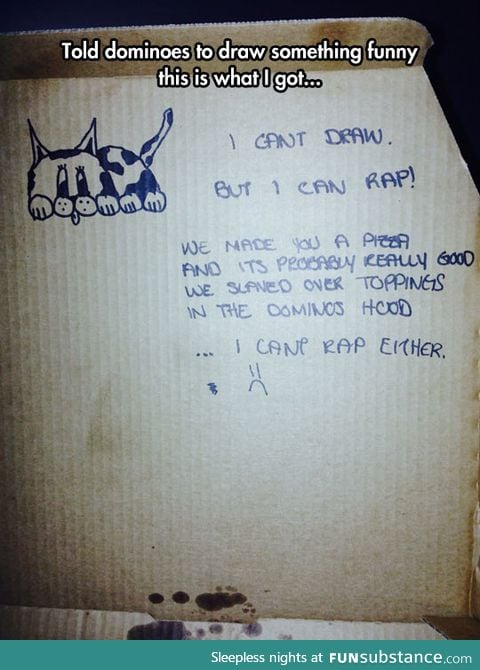 Told dominoes to draw something funny
this is what I got...
I CANT DRAW.
BUT I CAN RAP!
WE MADE YOU A PIZZA
AND ITS PROBABLY REALLY GOOD
WE SLAVED OVER TOPPINGS
IN THE DOMINOS HOOD
... I CANT RAP EITHER.
Sleepless nights at FUNsubstance.com